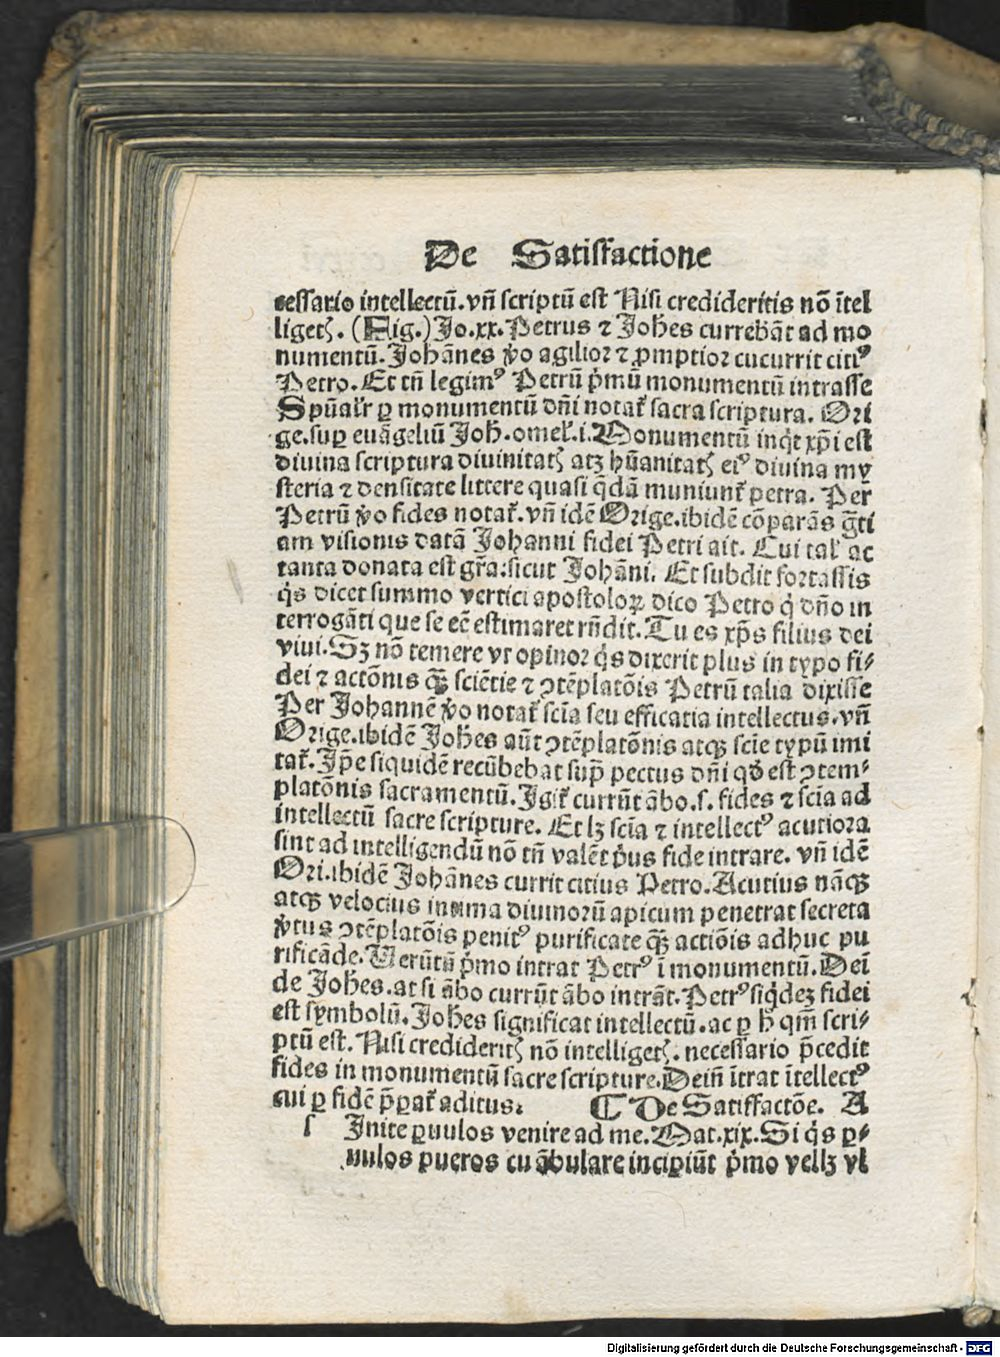 De Satisfactione
cessario intellectū. vñ scriptū est Nisi credideritis nō ītel
ligetꝭ. (Fig.) Jo. xx. Petrus ⁊ Joh̄es currebāt ad mo
numentū. Johānes v̓o agilior ⁊ ꝓmptior cucurrit citiꝰ
Petro. Et tn̄ legimꝰ Petrū p̓mū monumentū intrasse
Spūalr̓ ꝑ monumentū dn̄i notat̓ sacra scriptura. Ori
ge. suꝑ euāgeliū Joh̄. omel̓. i. Monumentū inq̓t xp̄i est
diuina scriptura diuinitatꝭ atꝫ hūanitatꝭ eiꝰ diuina my
steria ⁊ densitate littere quasi q̄dā muniunt̓ petra. Per
Petrū v̓o fides notat̓. vñ idē Orige. ibidē cōparās gr̄ti
am visionis datā Johanni fidei Petri ait. Cui tal̓ ac
tanta donata est gr̄a: sicut Johāni. Et subdit fortassis
q̓s dicet summo vertici apostoloꝝ dico Petro q̓ dn̄o in
terrogāti que se eē estimaret rn̄dit. Tu es xp̄s filius dei
viui. Sꝫ nō temere vt opinor q̓s dixerit plus in typo fi⸗
dei ⁊ actōnis q̄ꝫ sciētie ⁊ ꝯtēplatōis Petrū talia dixisse
Per Johannē v̓o notat̓ scīa seu efficatia intellectus. vñ
Orige. ibidē Joh̄es aūt ꝯtēplatōnis atqꝫ scīe typū imi
tat̓. Ip̄e siquidē recūbebat suꝑ pectus dn̄i qd̓ est ꝯtem⸗
platōnis sacramentū. Igit̓ currūt ābo. s. fides ⁊ scīa ad
intellectū sacre scripture. Et lꝫ scīa ⁊ intellectꝰ acutiora
sint ad intelligendū nō tn̄ valēt p̓us fide intrare. vñ idē
Ori. ibidē Johānes currit citius Petro. Acutius nāqꝫ
atqꝫ velocius intima diuinorū apicum penetrat secreta
v̓tus ꝯtēplatōis penitꝰ purificate q̄ꝫ actiōis adhuc pu
rificāde. Verūtn̄ p̓mo intrat Petrꝰ ī monumentū. Deī
de Joh̄es. at si ābo currūt ābo intrāt. Petrꝰ siq̓deꝫ fidei
est symbolū. Joh̄es significat intellectū. ac ꝑ h̄ qm̄ scri⸗
ptū est. Nisi credideritꝭ nō intelligetꝭ. necessario p̄cedit
fides in monumentū sacre scripture. Dein̄ ītrat ītellectꝰ
cui ꝑ fidē p̄ꝑat̓ aditus. ¶ De Satisfactōe. A
s Inite ꝑuulos venire ad me. Mat. xix. Si q̓s ꝑ⸗
uulos pueros cū ābulare incipiūt p̓mo vellꝫ vl
Digitalisierung gefördert durch die Deutsche Forschungsgemeinschaft - DFG